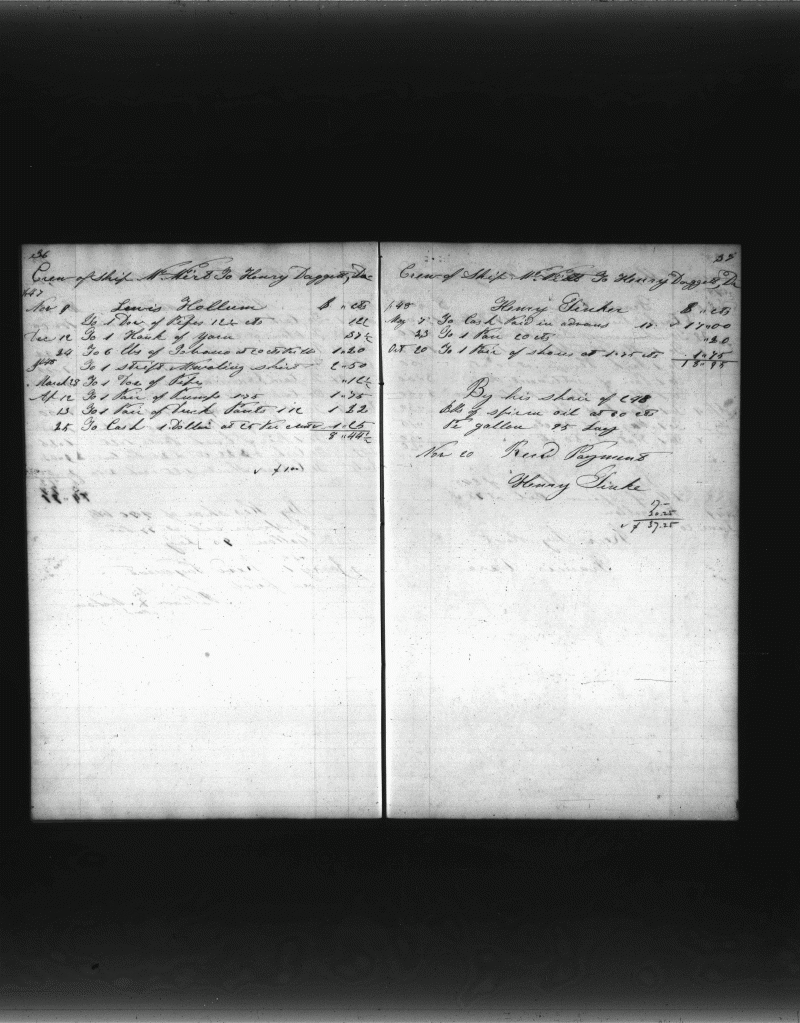 36
Crew of Ship To Henry Daggett, Dr
1847
Nov 8 Lewis Hollum $ " cts
To 1 Doz of Pipes 12½ cts 12½
Dec 12 To 1 Hank of Yarn 37½
24 To 6 lbs of Tobacco at 20 cts 1"20
1848 To 1 Shirt 2"50
March 28 To 1 Doz of Pipes "12½
Ap 12 To 1 Pair of Pumps 175 1"75
13 To 1 Pair of Duck Pants 1"12 1"22
25 To Cash 1 Dollar at 25 Per 1"25
8"44½
Crew of Ship To Henry Daggett, Dr
1848 Henry Tinker $ " cts
May 7 To Cash Paid in advans 17. 17"00
23 To 1 Pair 20 cts "20
Oct 20 To 1 Pair of shoes at 1"75 cts 1"75
18"95
By his shair of 298
Bbls of spirm oil at 80 cts
Pr gallon 95 Lay
Nov 20 Recd Payment
Henry Tinke
17-
20.25
37.25